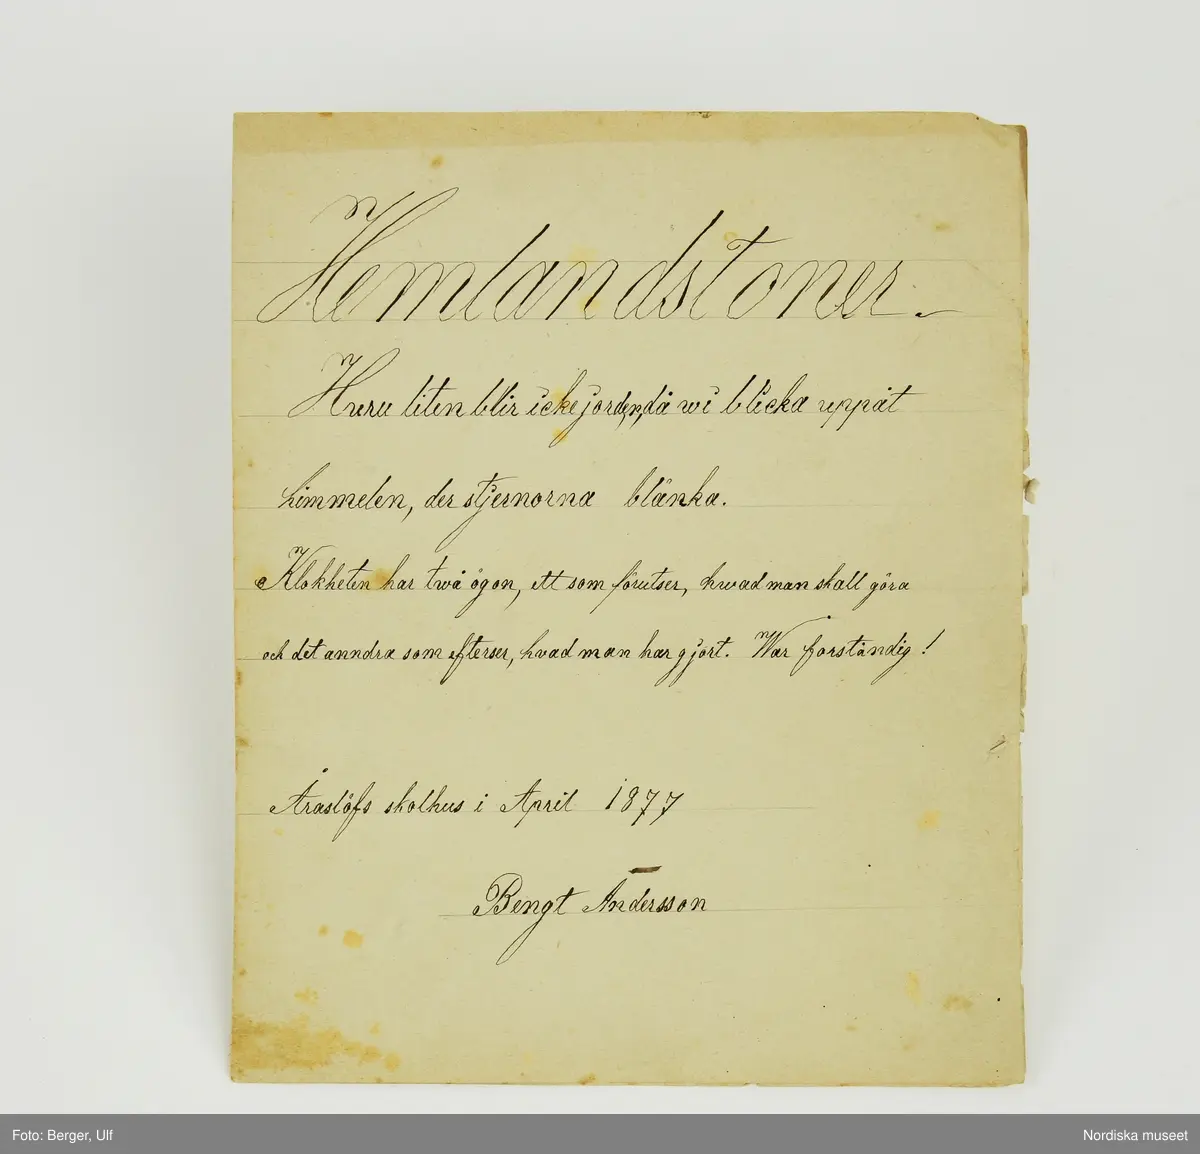 Hemlandstoner.
Huru liten blir icke jorden, då wi blicka uppåt
himmelen, der stjernorna blänka.
Klokheten har twå ögon, ett som förutser, hwad man skall göra
och det anndra som efterser, hvad man har gjort. War förståndig!
Araslöfs skolhus i April 1877
Bengt Andersson
Foto: Berger, Ulf
Nordiska museet